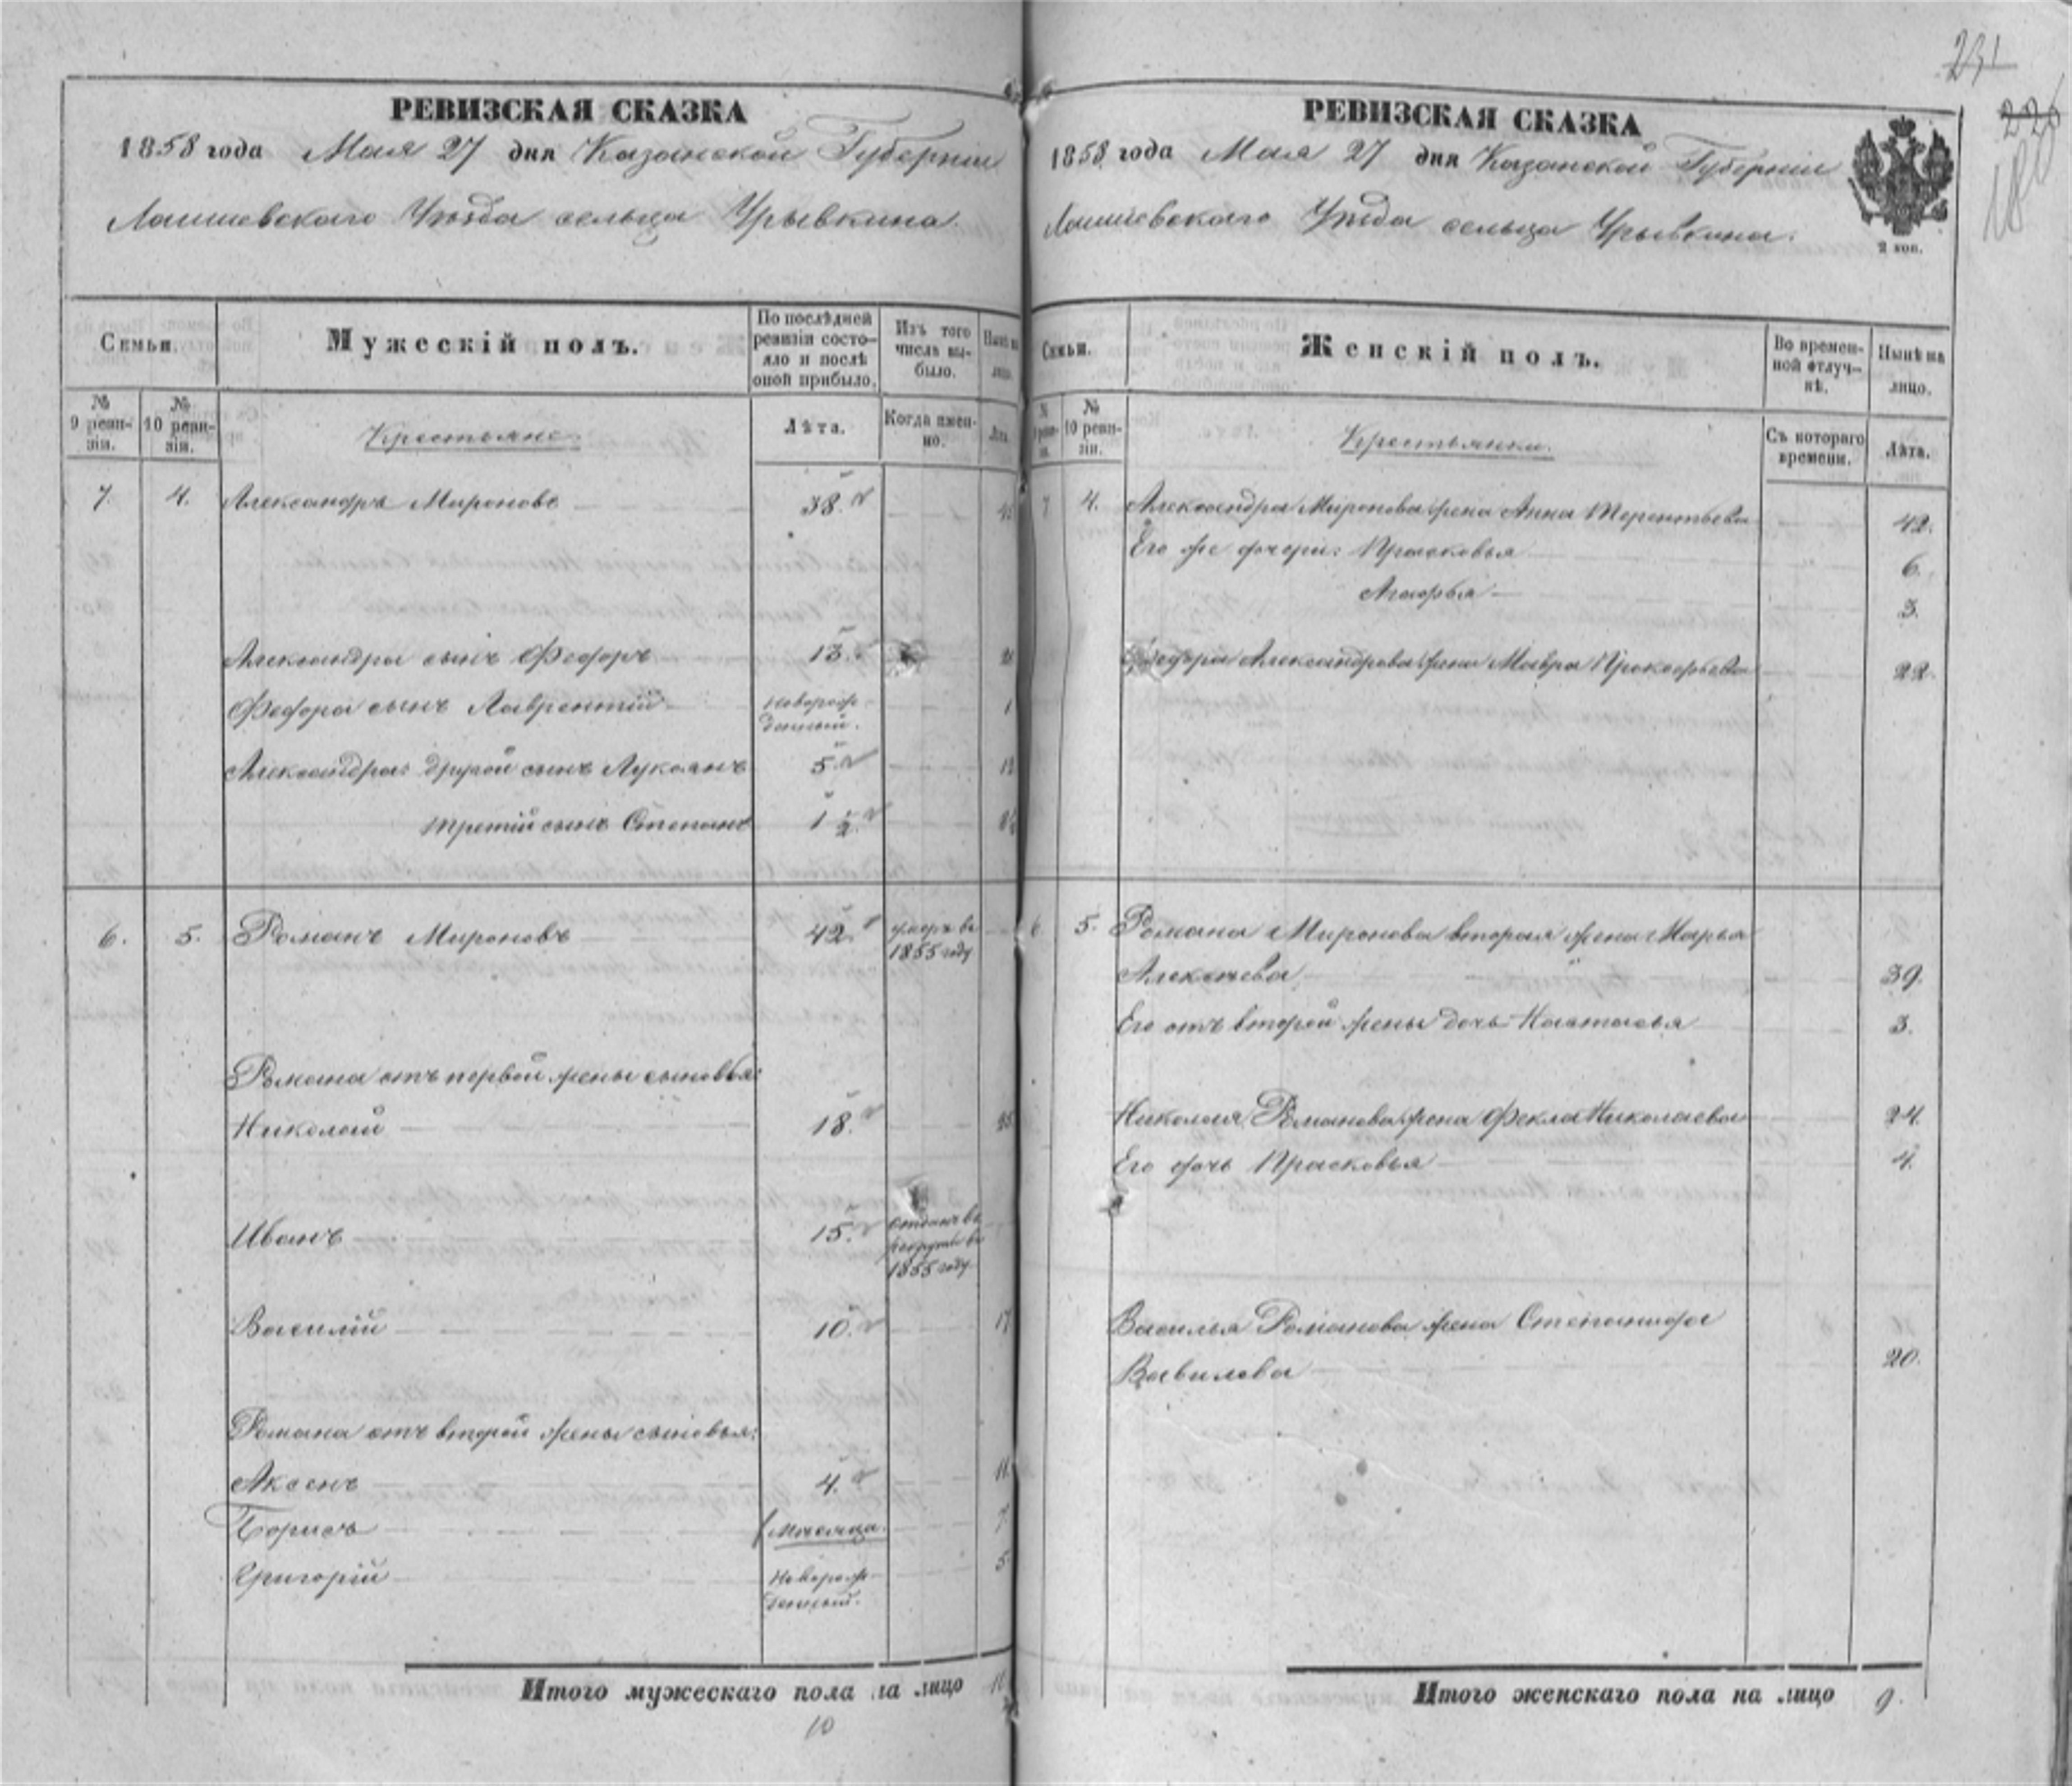 231
226
180
РЕВИЗСКАЯ СКАЗКА
1858 года Мая 27 дня Казанской Губерніи
Лаишевскаго Уѣзда сельца Урывкина.
Семьи.
Мужескій полъ.
По послѣдней ревизіи состояло и послѣ оной прибыло.
Изъ того числа выбыло.
№ 9 ревизіи.
№ 10 ревизіи.
Крестьяне.
Лѣта.
Когда именно.
Лѣта.
7. 4. Александръ Мироновъ 38.
Александра сынъ Федоръ 13.
Федора сынъ Лаврентій новорожденный. 1
Александра другой сынъ Лукоянъ 5. 12
третій сынъ Степанъ 1 1/2.
6. 5. Романъ Мироновъ 42. умеръ въ 1855 году
Романа отъ первой жены сыновья:
Николай 18.
Иванъ 15. отданъ въ рекруты въ 1855 году
Василій 10. 17
Романа отъ второй жены сыновья:
Аксенъ 4. 11.
Борисъ Месяца. 7.
Григорій Новорожденный. 5.
Итого мужескаго пола на лицо
10
РЕВИЗСКАЯ СКАЗКА
1858 года Мая 27 дня Казанской Губерніи
Лаишевскаго Уѣзда сельца Урывкина.
2 коп.
Семьи.
Женскій полъ.
Во временной отлучкѣ.
Нынѣ на лицо.
№ 10 ревизіи.
Крестьянки.
Съ котораго времени.
Лѣта.
7 4. Александра Миронова жена Анна Терентьева 42.
Его же дочери: Прасковья 6.
Агафья 3.
Федора Александрова жена Мавра Прокофьева 22.
6 5. Романа Миронова вторая жена Марья
Алексѣева 39.
Его отъ второй жены дочь Настасья 3.
Николая Романова жена Фекла Николаева 24.
Его дочь Прасковья 4.
Василья Романова жена Степанида
Вавилова 20.
Итого женскаго пола на лицо 9.